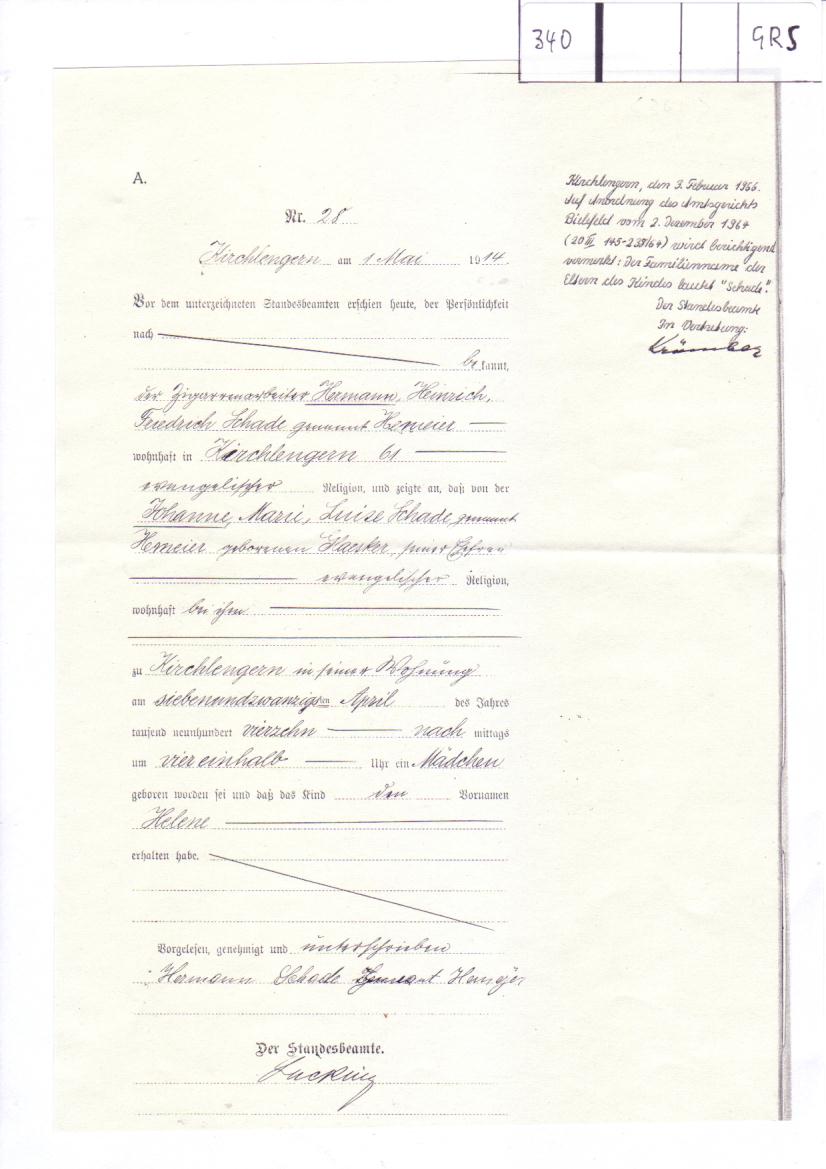 340 GRS
A.
Kirchlengern, den 3. Februar 1966.
Auf Anordnung des Amtsgerichts
Bielefeld vom 2. Dezember 1964
(20 III 145-235/64) wird berichtigend
vermerkt: Der Familienname der
Eltern des Kindes lautet "Schade".
Der Standesbeamte
In Vertretung:
Nr. 28
Kirchlengern am 1 Mai 1914.
Vor dem unterzeichneten Standesbeamten erschien heute, der Persönlichkeit
nach
bekannt,
der Zigarrenarbeiter Hermann, Heinrich,
Friedrich Schade genannt Hemeier
wohnhaft in Kirchlengern 61
evangelischer Religion, und zeigte an, daß von der
Johanne, Marie, Luise Schade genannt
Hemeier geborenen seiner Ehefrau
evangelischer Religion,
wohnhaft bei ihm
zu Kirchlengern in seiner Wohnung
am siebenundzwanzigsten April des Jahres
tausend neunhundert vierzehn nach mittags
um viereinhalb Uhr ein Mädchen
geboren worden sei und daß das Kind den Vornamen
Helene
erhalten habe.
Vorgelesen, genehmigt und unterschrieben
Hermann Schade genannt
Der Standesbeamte.